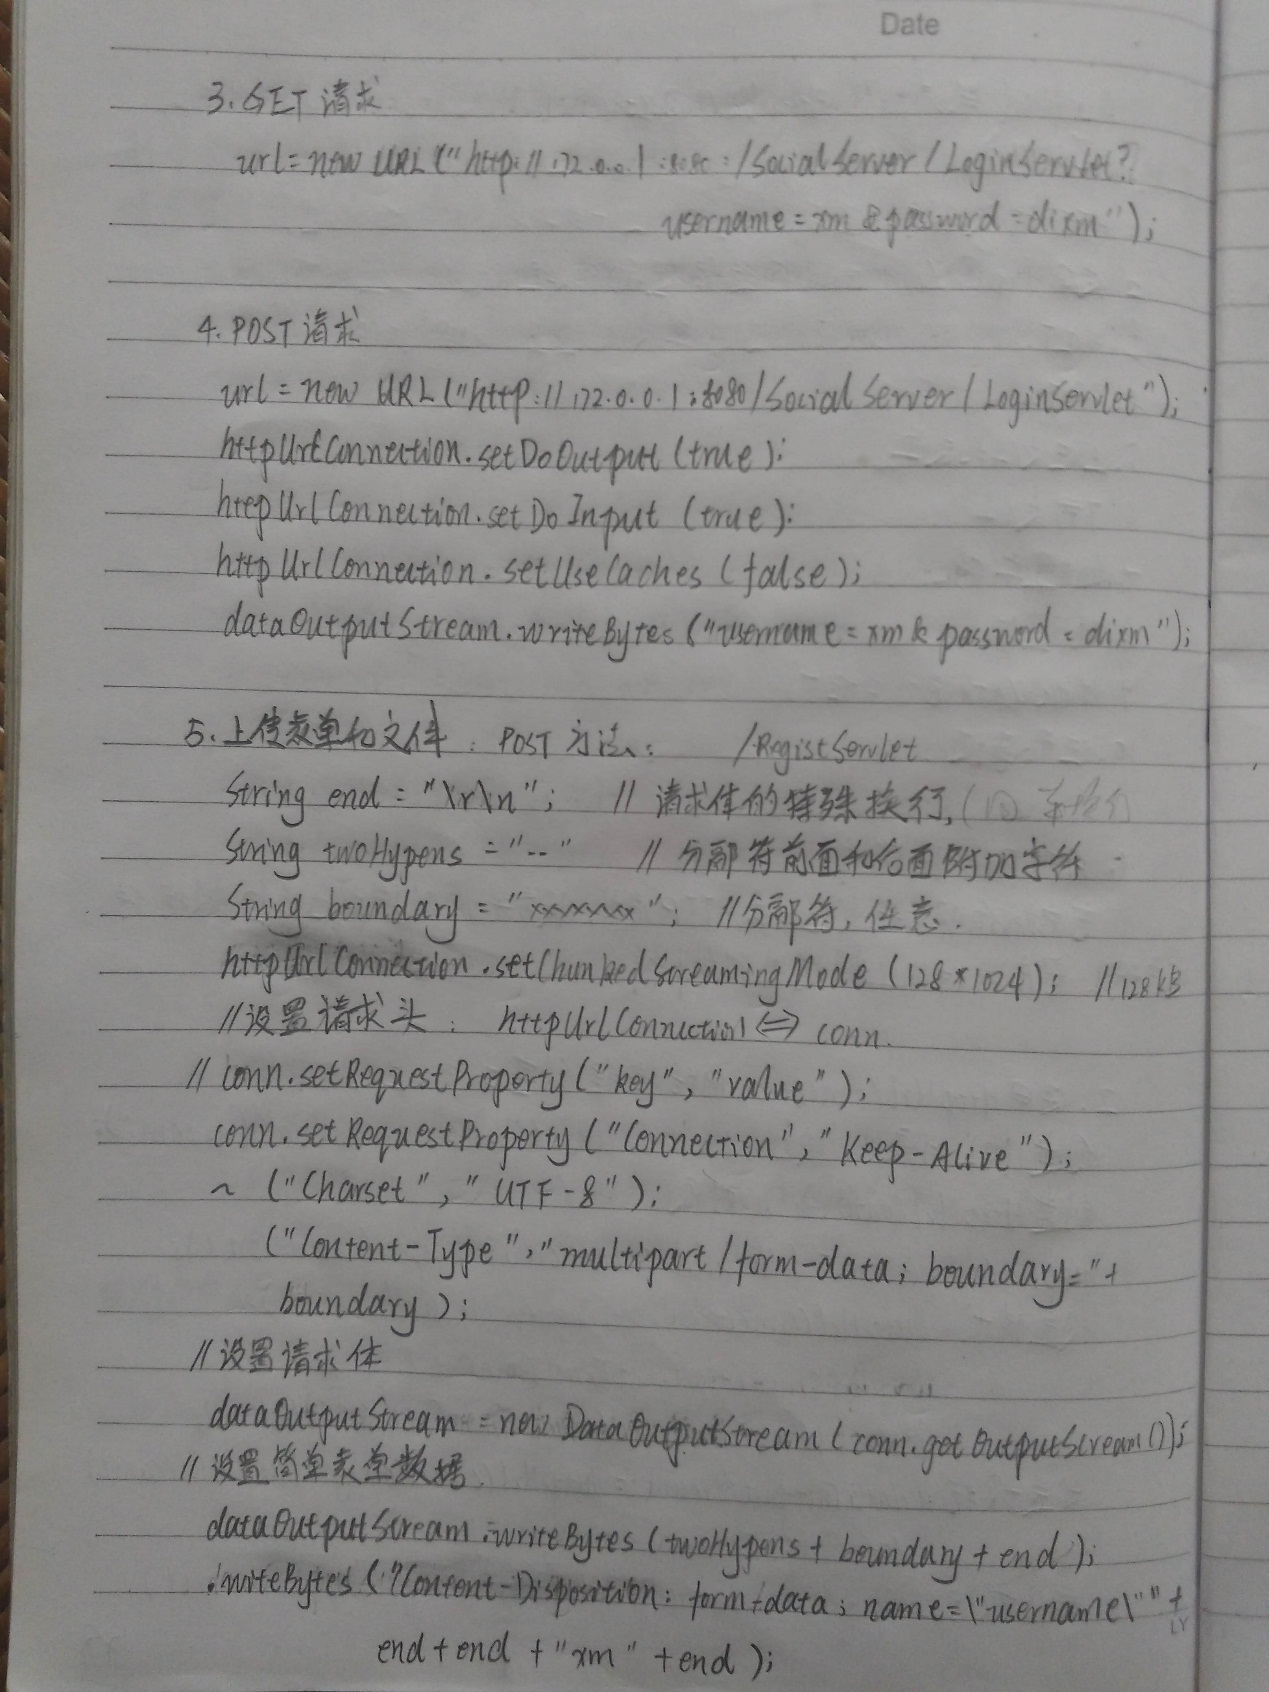 Date
3. GET 请求
url = new URL ("http://172.0.0.1:8080:/SocialServer/LoginServlet?
username = xm & password = dixm");
4. POST 请求
url = new URL ("http://172.0.0.1:8080/SocialServer/LoginServlet");
httpUrlConnection.setDoOutput (true);
httpUrlConnection.setDoInput (true);
httpUrlConnection.setUseCaches (false);
dataOutputStream.writeBytes ("username = xm & password = dixm");
5. 上传表单和文件: POST 方法: /RegistServlet
String end = "\r\n"; // 请求体的特殊换行,(回车换行
String twoHypens = "--" // 分部符前面和后面附加字符
String boundary = "xxxxxxx"; //分部符, 任意.
httpUrlConnection.setChunkedStreamingMode (128*1024); //128kB
//设置请求头: httpUrlConnection <=> conn.
// conn.setRequestProperty ("key", "value");
conn.setRequestProperty ("Connection", "Keep-Alive");
~ ("Charset", "UTF-8");
("Content-Type", "multipart/form-data; boundary="+
boundary);
//设置请求体
dataOutputStream = new DataOutputStream (conn.getOutputStream());
// 设置简单表单数据.
dataOutputStream.writeBytes (twoHypens + boundary + end);
.writeBytes ("Content-Disposition: form-data; name=\"username\"" +
LY
end + end + "xm" + end);